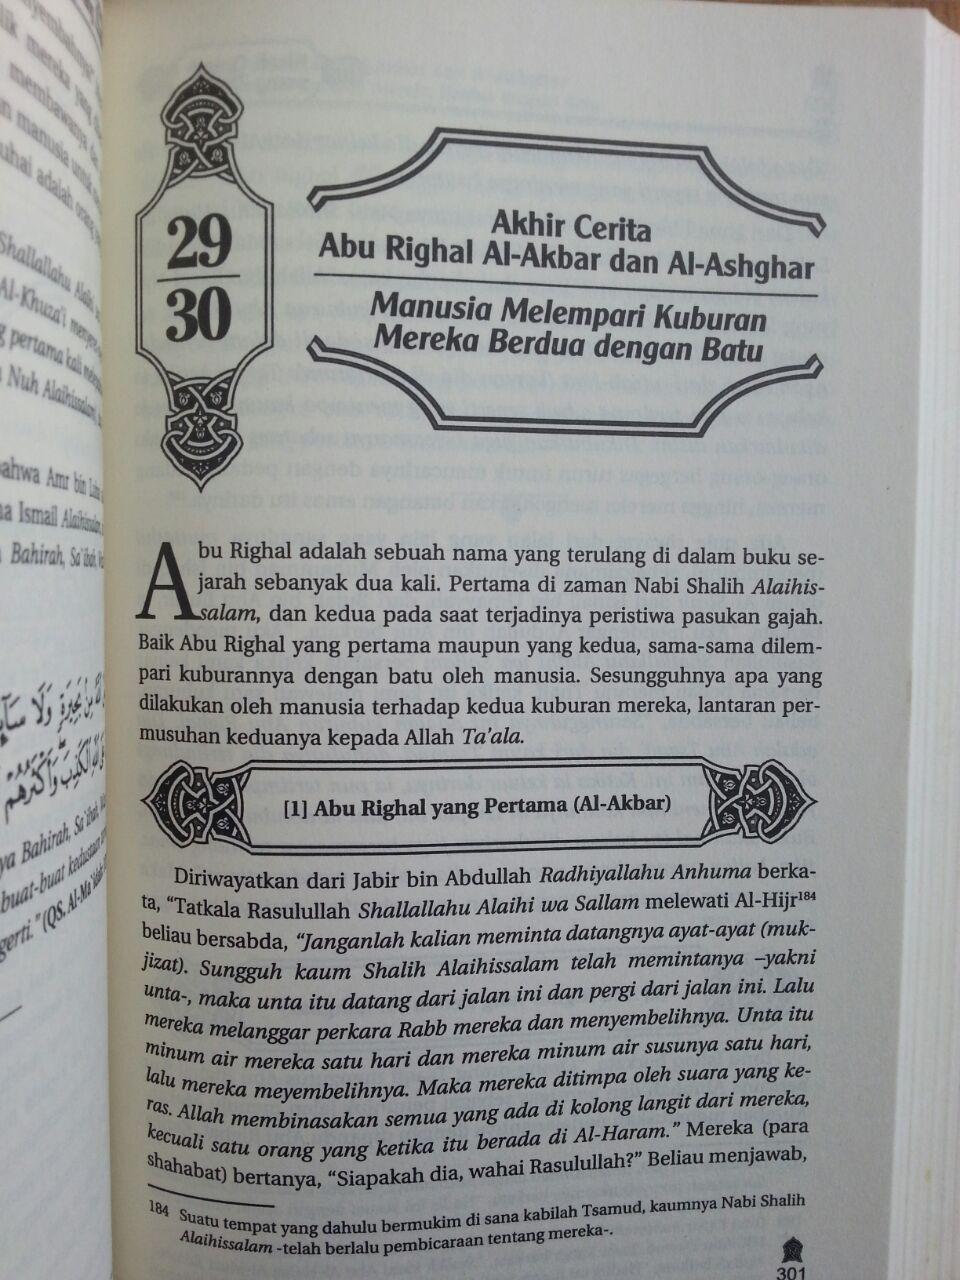 nyembahnya
lik mereka yang
membawanya da
n manusia untuk
uhai adalah orang
Shallallahu Alaihi
Al-Khuza'i menye
g pertama kali
Nuh Alaihissalam,
bahwa Amr bin
na Ismail Alaihissalam,
Bahirah, Sa`ibah,
ya Bahirah, Sa`ibah,
buat-buat kedustaan
gerti." (QS. Al-Ma
29
30
Akhir Cerita
Abu Righal Al-Akbar dan Al-Ashghar
Manusia Melempari Kuburan
Mereka Berdua dengan Batu
Abu Righal adalah sebuah nama yang terulang di dalam buku se-
jarah sebanyak dua kali. Pertama di zaman Nabi Shalih Alaihis-
salam, dan kedua pada saat terjadinya peristiwa pasukan gajah.
Baik Abu Righal yang pertama maupun yang kedua, sama-sama dilem-
pari kuburannya dengan batu oleh manusia. Sesungguhnya apa yang
dilakukan oleh manusia terhadap kedua kuburan mereka, lantaran per-
musuhan keduanya kepada Allah Ta'ala.
[1] Abu Righal yang Pertama (Al-Akbar)
Diriwayatkan dari Jabir bin Abdullah Radhiyallahu Anhuma berka-
ta, “Tatkala Rasulullah Shallallahu Alaihi wa Sallam melewati Al-Hijr¹⁸⁴
beliau bersabda, “Janganlah kalian meminta datangnya ayat-ayat (muk-
jizat). Sungguh kaum Shalih Alaihissalam telah memintanya –yakni
unta-, maka unta itu datang dari jalan ini dan pergi dari jalan ini. Lalu
mereka melanggar perkara Rabb mereka dan menyembelihnya. Unta itu
minum air mereka satu hari dan mereka minum air susunya satu hari,
lalu mereka meyembelihnya. Maka mereka ditimpa oleh suara yang ke-
ras. Allah membinasakan semua yang ada di kolong langit dari mereka,
kecuali satu orang yang ketika itu berada di Al-Haram.” Mereka (para
shahabat) bertanya, “Siapakah dia, wahai Rasulullah?” Beliau menjawab,
184 Suatu tempat yang dahulu bermukim di sana kabilah Tsamud, kaumnya Nabi Shalih
Alaihissalam -telah berlalu pembicaraan tentang mereka-.
301